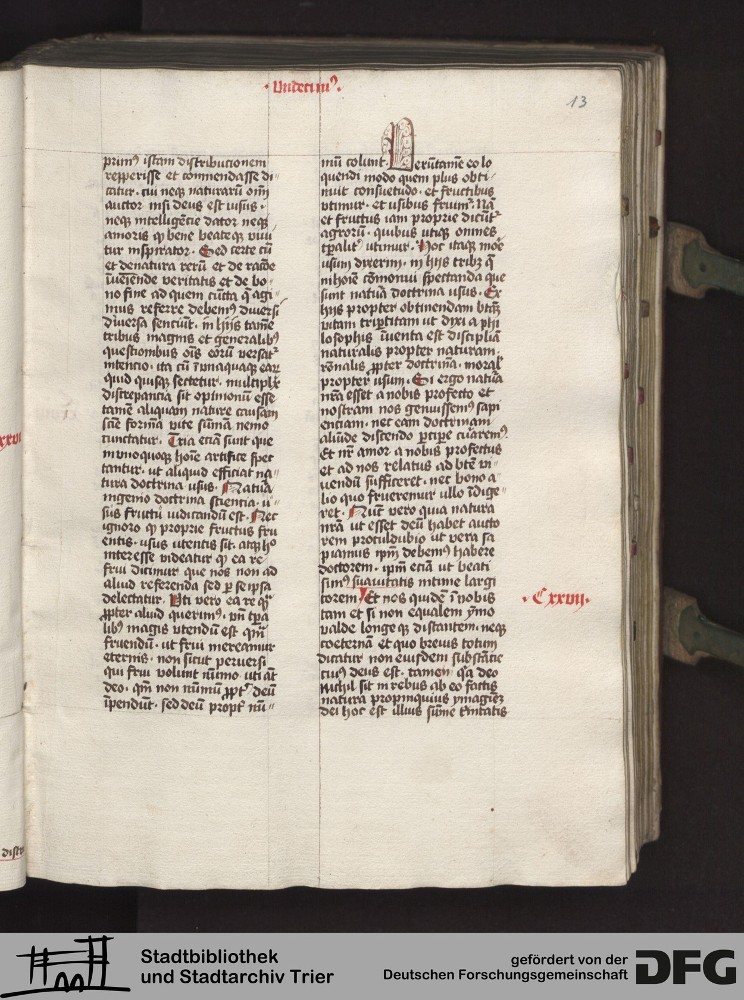 · Undecimꝰ ·
13
primꝰ istam distribucionem
repperisse et commendasse di〃
catur · cui neqꝫ naturarū om̄i
auctor nisi deus est visus ·
neqꝫ intelligēcie dator neqꝫ
amoris qͦ bene beateqꝫ viui
tur inspirator · Sed certe cū
et denatura rerū et de racōe
et de bo〃
no fine ad quem cūcta q̄ agi〃
mus referre debemꝰ diuersi
diuersa senciūt · in hijs tamē
tribus magnis et generalibꝰ
questionibus oīs eorū versatᷣ
intencio · ita cū vnaquaqꝫ earꝝ
quid quisqꝫ sectetur · multiplex
discrepancia sit opinionū esse
tamē aliquam nature causam
sciē formā vite sūmā nemo
cunctatur · Tria eciā sunt que
in vnoquoqꝫ hoīe artifice spec
tantur · vt aliquid efficiat na〃
tura doctrina vsus · Natura
ingenio doctrina sciencia · v〃
sus fructu iudicandū est · Nec
ignoro qͦ proprie fructus fru
entis · vsus vtentis sit · atqꝫ hͦ
interesse videatur qͦ ea re
frui dicimur que nos non ad
aliud referenda sed ꝑ se ipsa
delectatur · Vti vero ea re qᷓ
ꝓpter aliud querimꝰ · vn̄ tpa
libꝰ magis vtendū est · qm̄
fruendū · vt frui mereamur
eternis · non sicut peruersi
qui frui volunt nūmo · vti aūt
deo · qm̄ non nūmū ꝓpt deū
īpendūt · sed deū propt nū〃
mū colunt Uerūtamē eo lo
quendi modo quem plus obti〃
nuit consuetudo · et fructibus
vtimur · et vsibus fruimͬ · Nā
et fructus iam proprie dicūt
agrorū · quibus vtiqꝫ omnes
tꝑalitͬ vtimur · Hoc itaqꝫ mōe
vsum dixerim · in hijs tribꝫ q̄
in hoīe cōmonui spectanda que
sunt natura doctrina vsus · Ex
hijs propter obtinendam btām
vitam tripertitam vt dixi a phi
losophis īuenta est disciplīā
naturalis propter naturam ·
rōnalis ꝓpter doctrinā · moral
propter vsum · Si ergo natura
nr̄a esset a nobis profecto et
nostram nos genuissemꝰ sapi
enciam · nec eam doctrinam
aliūde discendo ꝑcipe curaremꝰ ·
Et nr̄ amor a nobis profectus
et ad nos relatus ad btē vi〃
uendū sufficeret · nec bono a〃
lio quo frueremur vllo īdige〃
ret · Nūc vero quia natura
nr̄a vt esset deū habet aucto
rem proculdubio vt vera sa
piamus ipm̄ debemꝰ habere
doctorem · ipm̄ eciā vt beati
simꝰ suauitatis intime largi
torem Et nos quidē ī nobis
tam et si non equalem ymo
valde longe qꝫ distantem · neqꝫ
coeternā et quo breuius totum
dicatur non eiusdem substācie
cuiꝰ deus est · tamen qᷓ deo
nichil sit in rebus ab eo factis
natura propinquius ymaginē
dei hoc est illius sūme trinitatis
· Cxxviij ·
xxvi
Stadtbibliothek
und Stadtarchiv Trier
gefördert von der
Deutschen Forschungsgemeinschaft
DFG